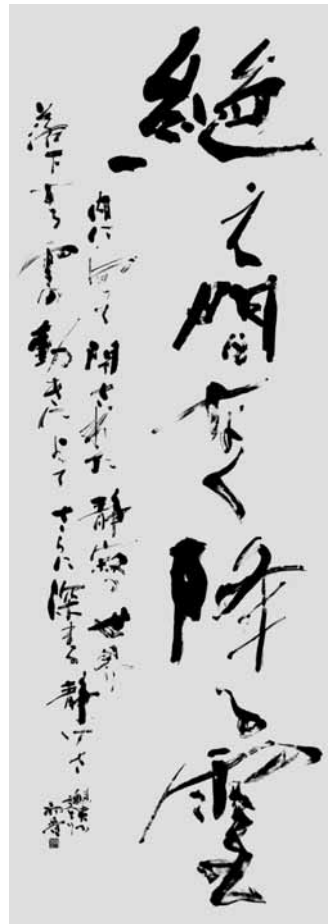 絶え間なく降る雪
内に向って閉ざされた静寂の世界
落下する雪の動きによってさらに深まる静けさ